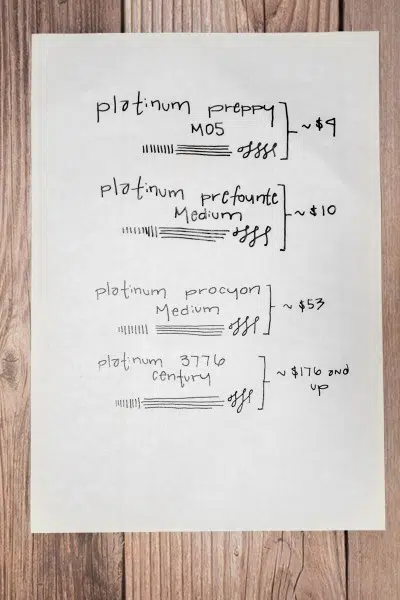 platinum preppy
M05
~ $4
platinum prefounte
Medium
~ $10
platinum procyon
Medium
~ $53
platinum 3776
century
~ $176 and
up